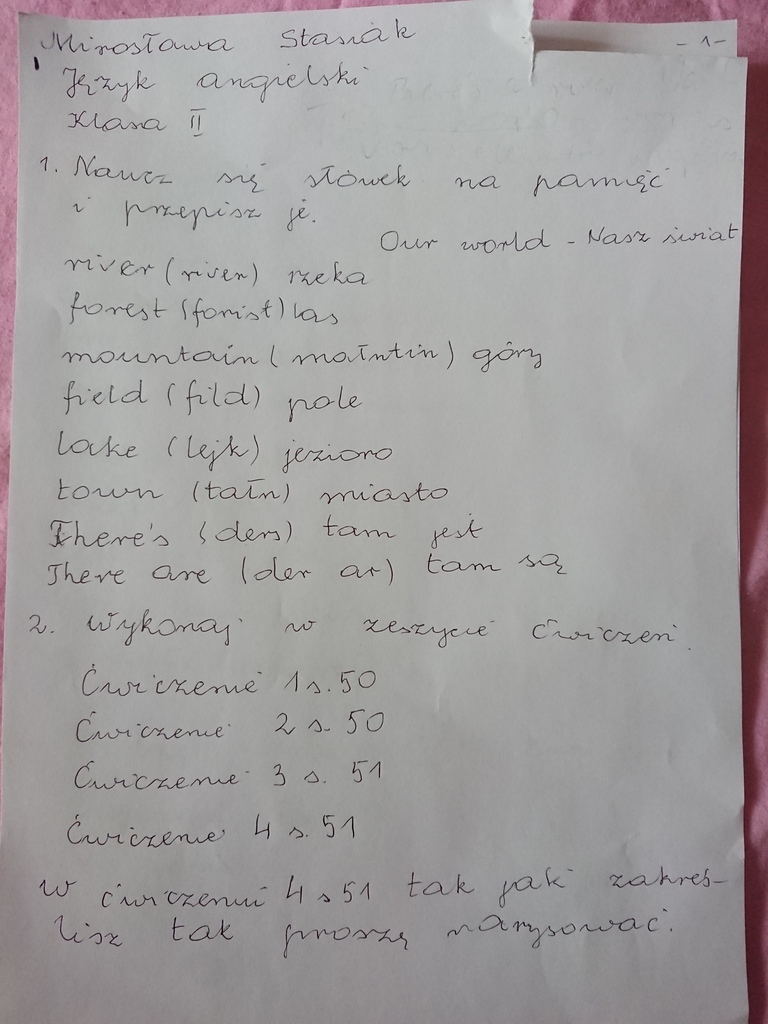 Mirosława Stasiak
- 1 -
Język angielski
Klasa II
1. Naucz się słówek na pamięć
i przepisz je.
Our world - Nasz świat
river (river) rzeka
forest (forist) las
mountain (małntin) góry
field (fild) pole
lake (lejk) jezioro
town (tałn) miasto
There's (ders) tam jest
There are (der ar) tam są
2. Wykonaj w zeszycie ćwiczeń.
Ćwiczenie 1 s. 50
Ćwiczenie 2 s. 50
Ćwiczenie 3 s. 51
Ćwiczenie 4 s. 51
W ćwiczeniu 4 s 51 tak jak zakreś-
lisz tak proszę narysować.